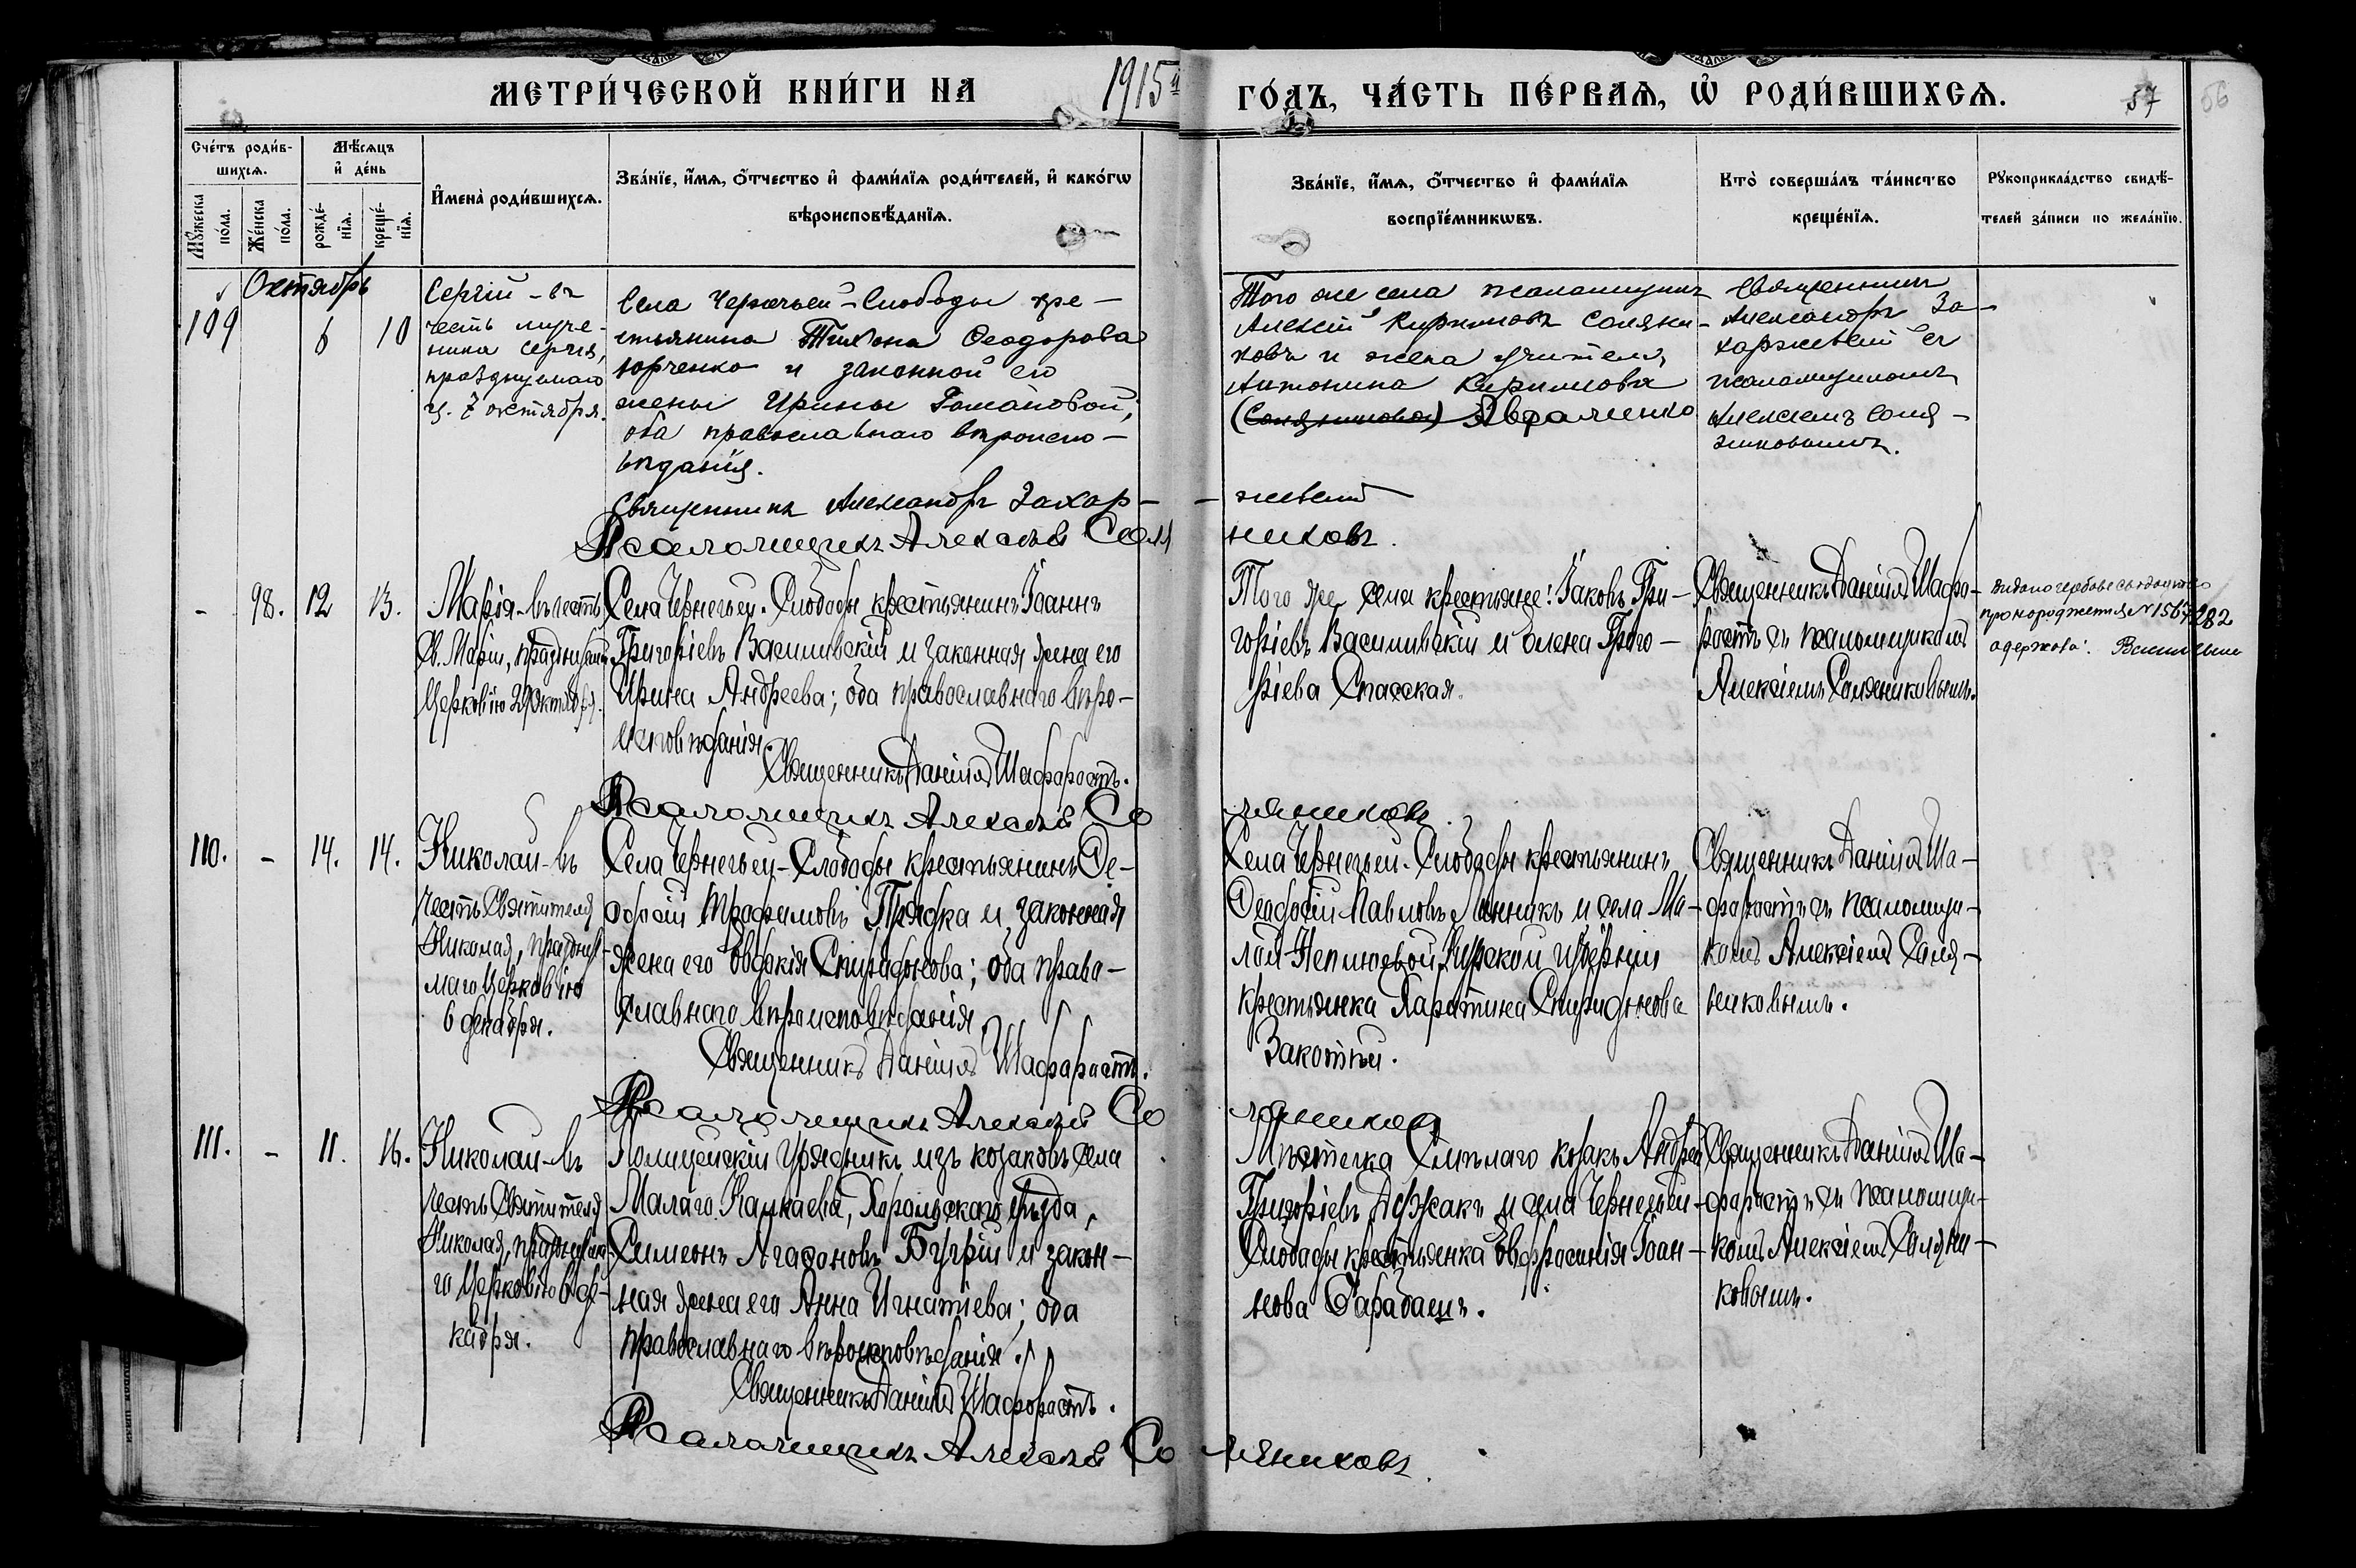 МЕТРИ́ЧЕСКОЙ КНИ́ГИ НА 1915й ГО́ДЪ, ЧА́СТЬ ПЕ́РВАѦ, Ѽ РОДИ́ВШИХСѦ.
57
56
Сче́тъ роди́в-
шихсѧ.
Мѣ́сѧцъ
и҆ де́нь
Мꙋ́жеска
по́ла.
Же́нска
по́ла.
рожде́-
нїѧ.
креще́-
нїѧ.
И҆мена̀ роди́вшихсѧ.
Зва́нїе, и҆́мѧ, ѻ҆́тчество и҆ фами́лїѧ роди́телей, и҆ како́гѡ
вѣроисповѣ́данїѧ.
Зва́нїе, и҆́мѧ, ѻ҆́тчество и҆ фами́лїѧ
воспрїе́мникѡвъ.
Кто̀ соверша́лъ та́инство
креще́нїѧ.
Рꙋкоприкла́дство свидѣ́-
телей за́писи по жела́нїю.
Октябрь
109
6
10
Сергій - въ
честь муче-
ника Сергія,
празднуемаго
ц. 7 октября.
Села Чернечьей-Слободы кре-
стьянина Тихона Ѳеодорова
Юрченко и законной его
жены Ирины Романовой;
оба православнаго вѣроиспо-
вѣданія.
Священникъ Александръ Захар-
жевскій
Псаломщикъ Алексѣй Соляниковъ.
Того же села псаломщикъ
Алексій Кириловъ Соляни-
ковъ и жена учителя,
Антонина Кирилова
(Соляникова) Авраменко
Священникъ
Александръ За-
харжевскій съ
псаломщикомъ
Алексіемъ Соля-
никовымъ.
-
98.
12
13.
Марія - въ честь
Св. Маріи, празднуем.
Церковію 29 Октября.
Села Чернечьей-Слободы крестьянинъ Іоаннъ
Григоріевъ Василивскій и законная жена его
Ирина Андреева; оба православнаго вѣро-
исповѣданія.
Священникъ Даніилъ Шафоростъ.
Псаломщикъ Алексѣй Соляниковъ.
Того же села крестьяне: Іаковъ Гри-
горіевъ Василивскій и Елена Григо-
ріева Спасская.
Священникъ Даніилъ Шафо-
ростъ съ псаломщикомъ
Алексіемъ Соляниковымъ.
видано гербове свідоцтво
про народження № 1567282
одержав:
110.
-
14.
14.
Николай - въ
честь Святителя
Николая, празднуе-
маго Церковію
6 декабря.
Села Чернечьей-Слободы крестьянинъ Ѳе-
одосій Трофимовъ Прядка и законная
жена его Евдокія Спиридонова; оба право-
славнаго вѣроисповѣданія.
Священникъ Даніилъ Шафоростъ.
Псаломщикъ Алексѣй Соляниковъ
Села Чернечьей-Слободы крестьянинъ
Ѳеодосій Павловъ Линникъ и села Ма-
лой-Неплюевой Курской губерніи
крестьянка Харитина Спиридонова
Закотній.
Священникъ Даніилъ Ша-
форостъ съ псаломщи-
комъ Алексіемъ Соля-
никовымъ.
111.
-
11.
16.
Николай - въ
честь Святителя
Николая, празднуема-
го Церковію 6 де-
кабря.
Полицейскій урядникъ изъ козаковъ села
Малаго Канкаева, Хорольскаго уѣзда,
Симеонъ Агафоновъ Бугрій и закон-
ная жена его Анна Игнатіева; оба
православнаго вѣроисповѣданія.
Священникъ Даніилъ Шафоростъ.
Псаломщикъ Алексѣй Соляниковъ.
Мѣстечка Смѣлаго козакъ Андрей
Григоріевъ Держакъ и села Чернечьей-
Слободы крестьянка Евфросинія Іоан-
нова Барабашъ.
Священникъ Даніилъ Ша-
форостъ съ псаломщи-
комъ Алексіемъ Соляни-
ковымъ.